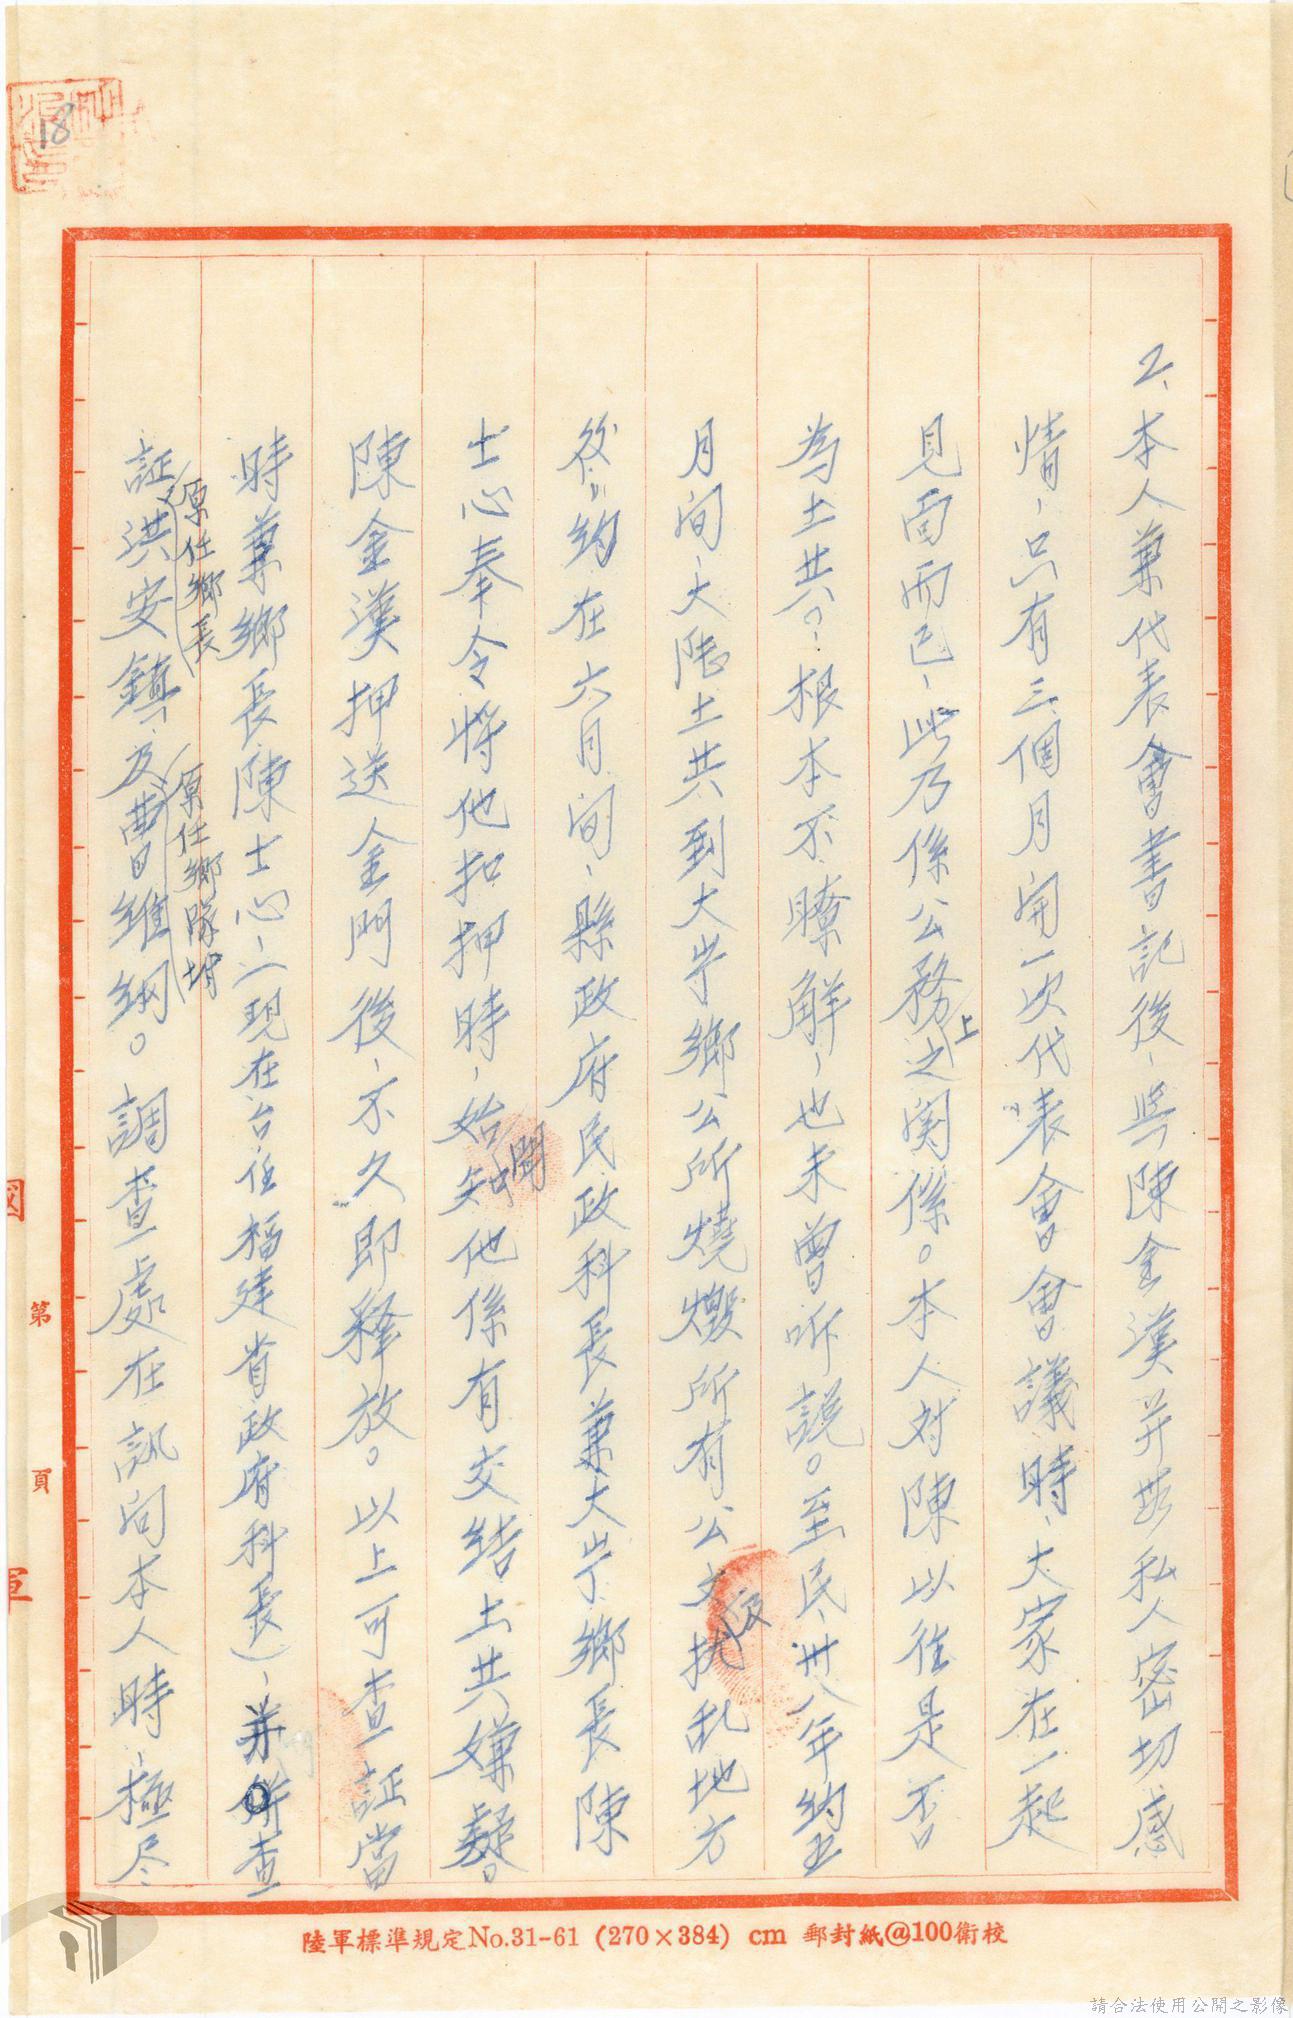 18
2、本人兼代表會書記後，與陳金漢并無私人密切感
情，只有三個月開一次代表會會議時，大家在一起
見面而已，此乃係公務上之関係。本人对陳以往是否
為土共。根本不瞭解，也未曾听說。至民卅八年約五
月间，大陸土共到大嶝鄉公所燒燬所有公文及扰乱地方
後，約在六月间，縣政府民政科長兼大嶝鄉長陳
士心奉令将他扣押時，始知他係有交结土共嫌疑。
聞中
陳金漢押送金門後，不久即释放。以上可查証當
時兼鄉長陳士心，（現在台任福建省政府科長），并查
証洪安鎮，及曹維纲。調查處在訊问本人時，極尽
（原任鄉長）
（原任鄉隊坿）
第
頁
陸軍標準規定No.31-61 (270×384) cm 郵封紙@100衛校
請合法使用公開之影像